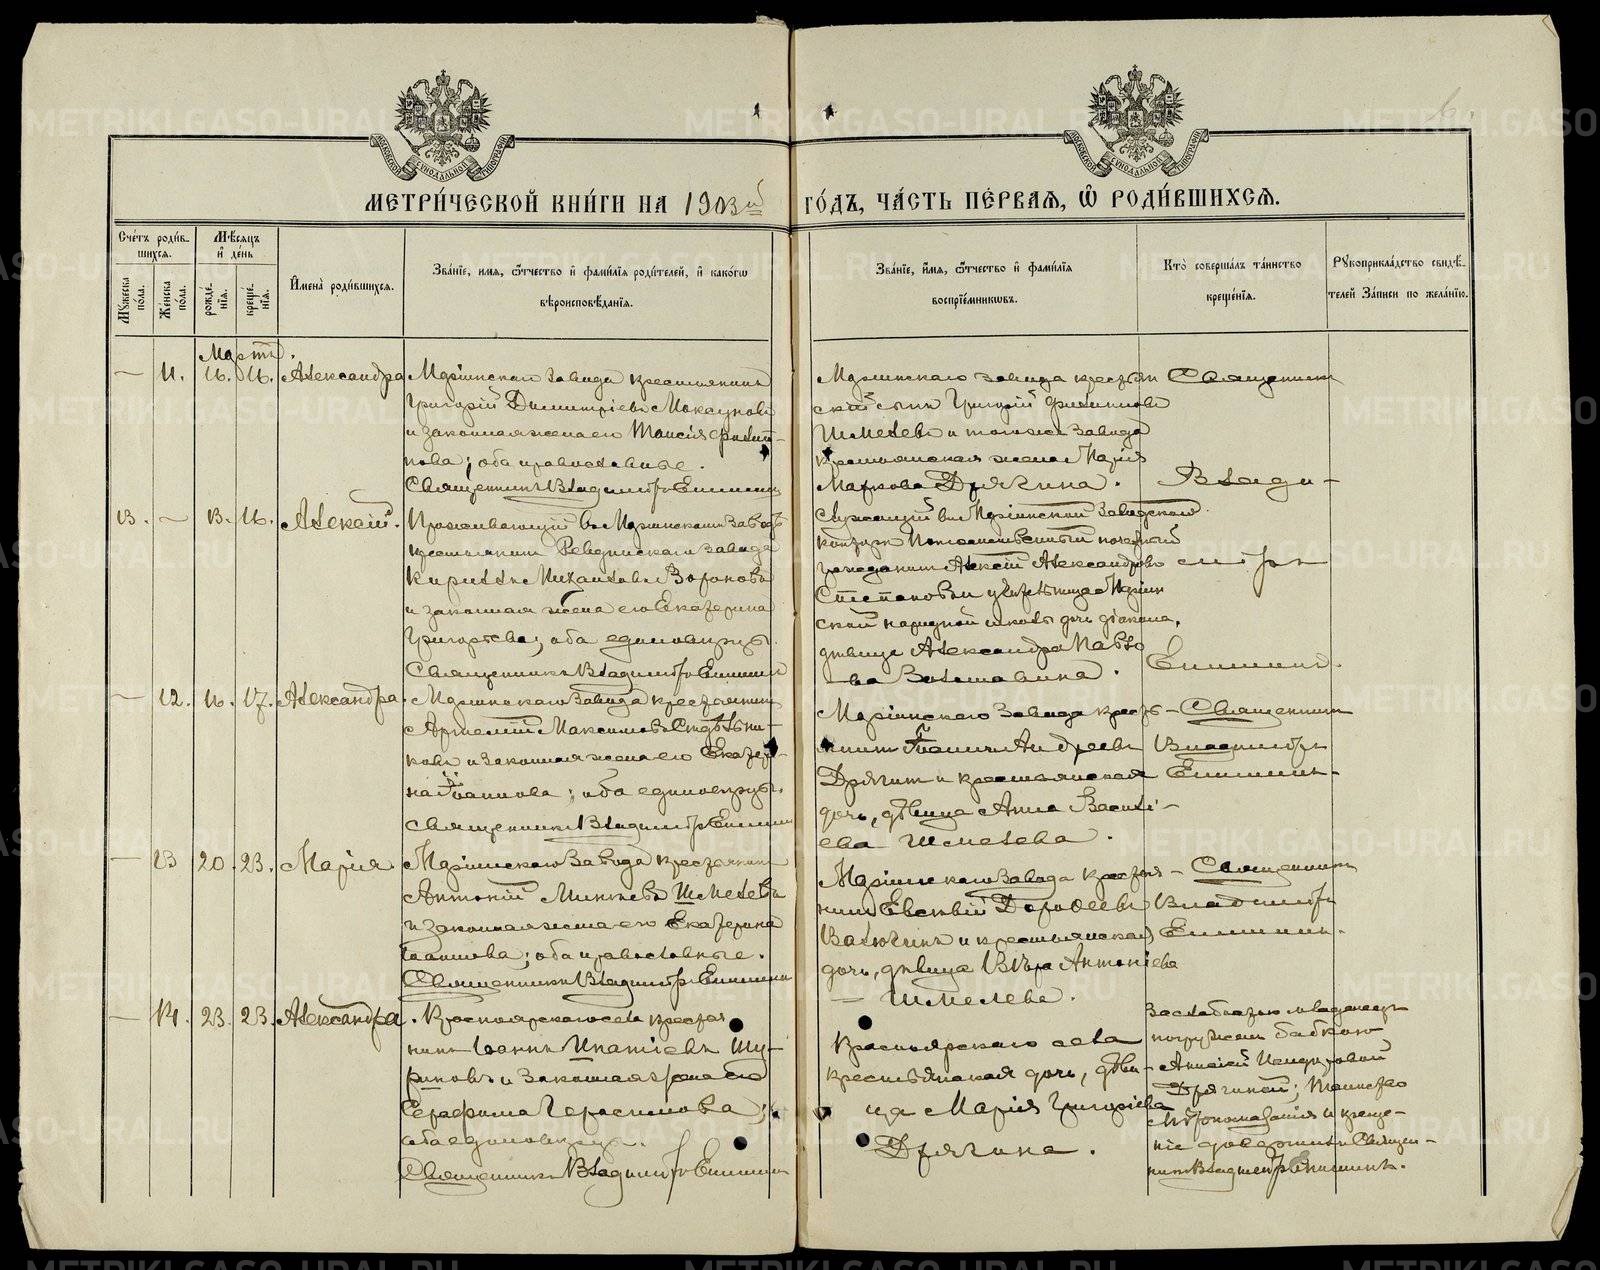 МЕТРИ́ЧЕСКОЙ КНИ́ГИ НА 1903й ГО́ДЪ, ЧА́СТЬ ПЕ́РВАЯ, Ѿ РОДИ́ВШИХСЯ.
Сче́тъ роди́в-
шихся.
Мѣ́сяцъ
и҆ де́нь
Мꙋ́жеска по́ла.
Же́нска по́ла.
рожде́нїя.
креще́нїя.
И҆мена̀ роди́вшихся.
Зва́нїе, имя, ѻ҆́тчество и҆ фами́лїя роди́телей, и҆ како́гѡ
вѣроисповѣ́данїя.
Зва́нїе, и҆́мя, ѻ҆́тчество и҆ фами́лїя
воспрїе́мникѡвъ.
Кто̀ соверша́лъ та́инство
креще́нїя.
Рꙋкоприкла́дство свидѣ́-
телей За́писи по жела́нїю.
Мартъ.
— 11. 16. 16. Александра
Маріинскаго завода крестьянинъ
Григорій Димитріевъ
и законная жена его Таисія Филип-
пова; оба православные.
Священникъ Владиміръ Епишинъ
Маріинскаго завода крестьян
скій сынъ Григорій Филипповъ
Шмелевъ и тогоже завода
крестьянская жена Марія
Маркова Дрягина.
Священникъ
Влади-
міръ
Епишинъ.
13. — 13. 16. Алексій.
Проживающій въ Маріинскомъ заводѣ
крестьянинъ Ревдинскаго завода
Кириллъ Михаиловъ Вороновъ
и законная жена его Екатерина
Григорьева; оба единовѣрцы.
Священникъ Владиміръ Епишинъ
Служащій въ Маріинской Заводской
конторѣ Потомственный почетный
гражданинъ Алексій Александровъ
Степановъ и учительница Маріин
ской народной школы дочь діакона,
дѣвица Александра Павло
ва
— 12. 16. 17. Александра.
Маріинскаго Завода крестьянинъ
Артемій Максимовъ Сидѣльни-
ковъ и законная жена его Екатери-
на Іоаннова; оба единовѣрцы.
Священникъ Владиміръ Епишинъ
Маріинскаго Завода кресть-
янинъ Іоаннъ Андреевъ
Дрягинъ и крестьянская
дочь, дѣвица Анна Василі-
ева Шмелева.
Священникъ
Владиміръ
Епишинъ.
— 13 20. 23. Марія.
Маріинскаго Завода крестьянинъ
Антоній Шмелевъ
и законная жена его Екатерина
Іоаннова; оба православные.
Священникъ Владиміръ Епишинъ
Маріинскаго Завода крестья-
нинъ Евсевій Дорофеевъ
и крестьянская
дочь, дѣвица Вѣра Антоніева
— Шмелева.
Священникъ
Владиміръ
Епишинъ.
— 14. 23. 23. Александра.
Красноярскаго села крестья
нинъ Іоаннъ Игнатіевъ
и законная жена его
Серафима Герасимова;
оба единовѣрцы.
Священникъ Владиміръ Епишинъ
Красноярскаго села
крестьянская дочь, дѣви-
ца Марія Григоріева
Дрягина.
За слабостію младенецъ
погруженъ бабкою
Дрягиной; Таинство
Мѵропомазанія и креще-
ніе довершилъ Священ-
никъ Владиміръ Епишинъ.